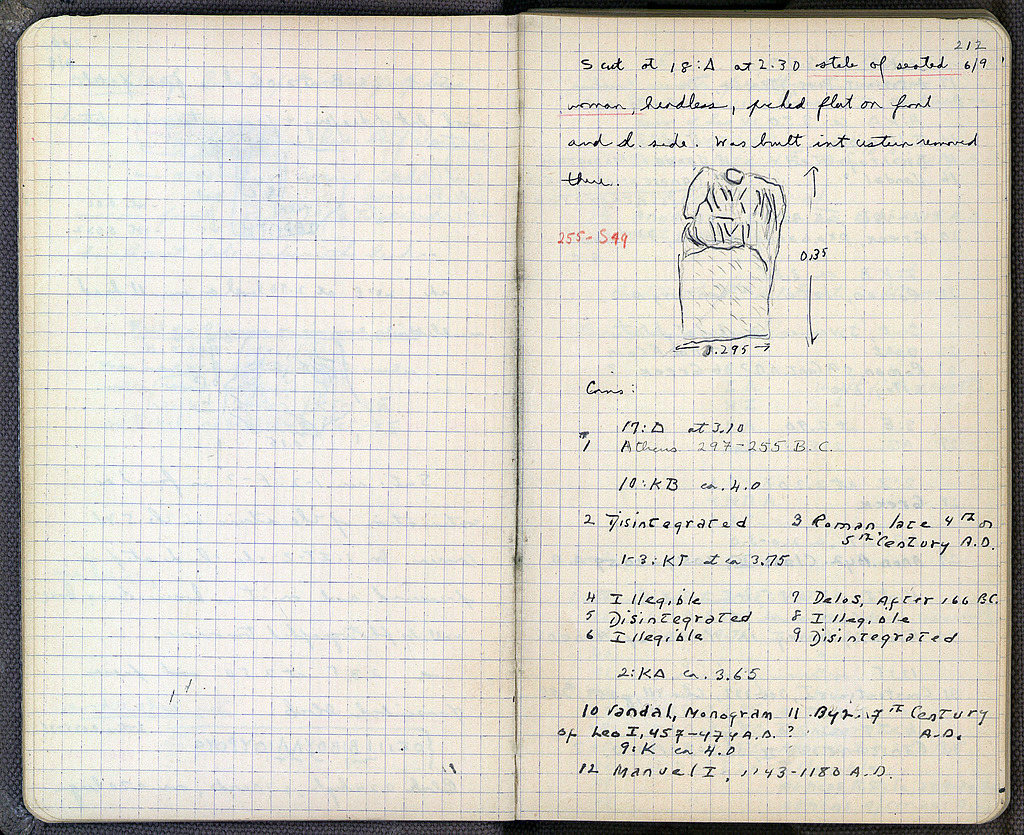 212
S cut at 18:Δ at 2.30 stele of seated 6/9
woman, headless, picked flat on front
and d. side. Was built int cistern removed
there.
255-S49
0.35
0.295
Coins:
17:Δ at 3.10
1 Athens 297-255 B.C.
10:KB ca. 4.0
2 Disintegrated 3 Roman, late 4th or
5th Century A.D.
1-3:KΓ at ca 3.75
4 Illegible 7 Delos, After 166 BC.
5 Disintegrated 8 Illegible
6 Illegible 9 Disintegrated
2:KΔ ca. 3.65
10 Vandal, Monogram 11 Byz. 7th Century
of Leo I, 457-474 A.D. ? A.D.
9:K ca 4.0
12 Manuel I, 1143-1180 A.D.